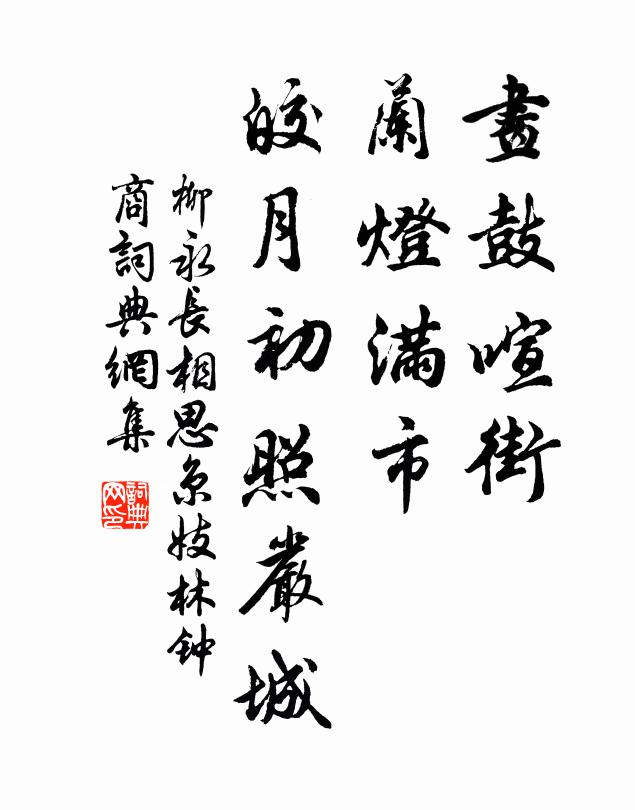 畫鼓喧街
蘭燈滿市
皎月初照嚴城
柳永長相思京妓林钟
商詞典網集
詞典
网印